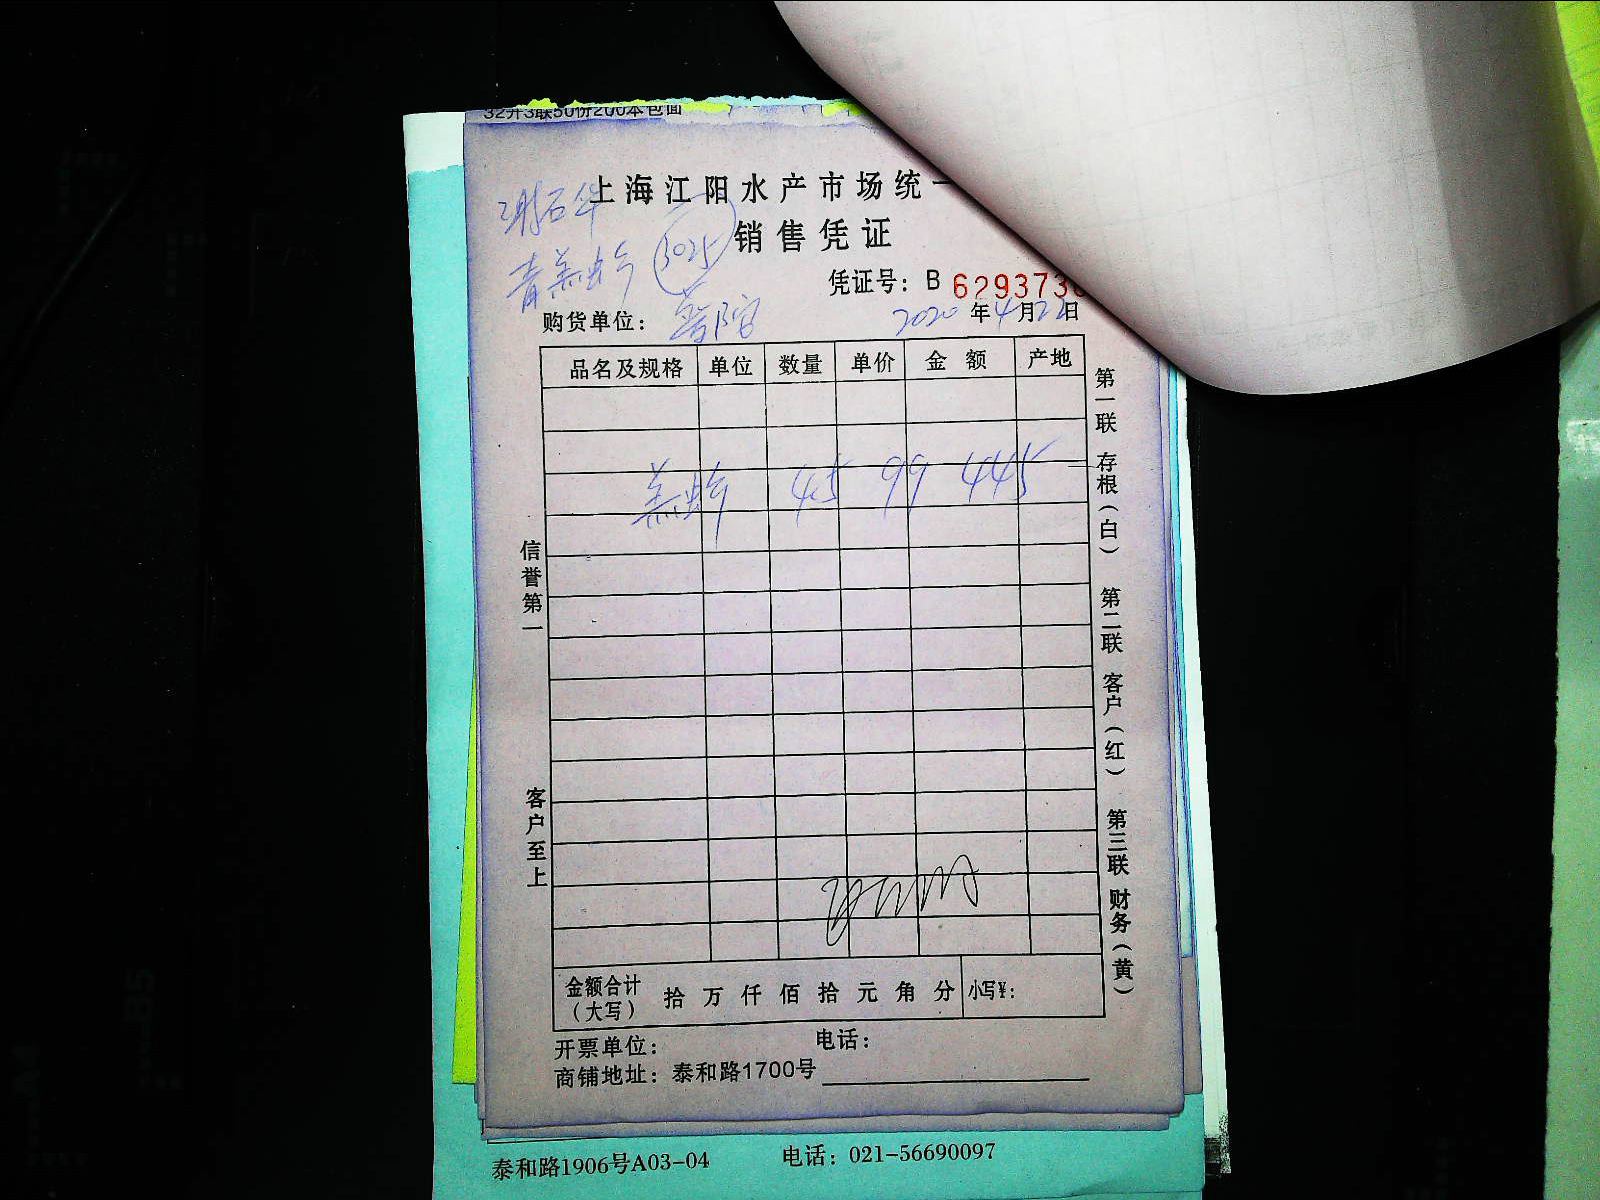 32开3联50份200本包面
上海江阳水产市场统一
销售凭证
3025
凭证号：B 629373
购货单位：普陀
2020年4月22日
品名及规格 单位 数量 单价 金额 产地
45 99 445
信誉第一
客户至上
第一联 存根（白） 第二联 客户（红） 第三联 财务（黄）
金额合计（大写） 拾 万 仟 佰 拾 元 角 分 小写¥：
开票单位： 电话：
商铺地址：泰和路1700号
泰和路1906号A03-04 电话：021-56690097